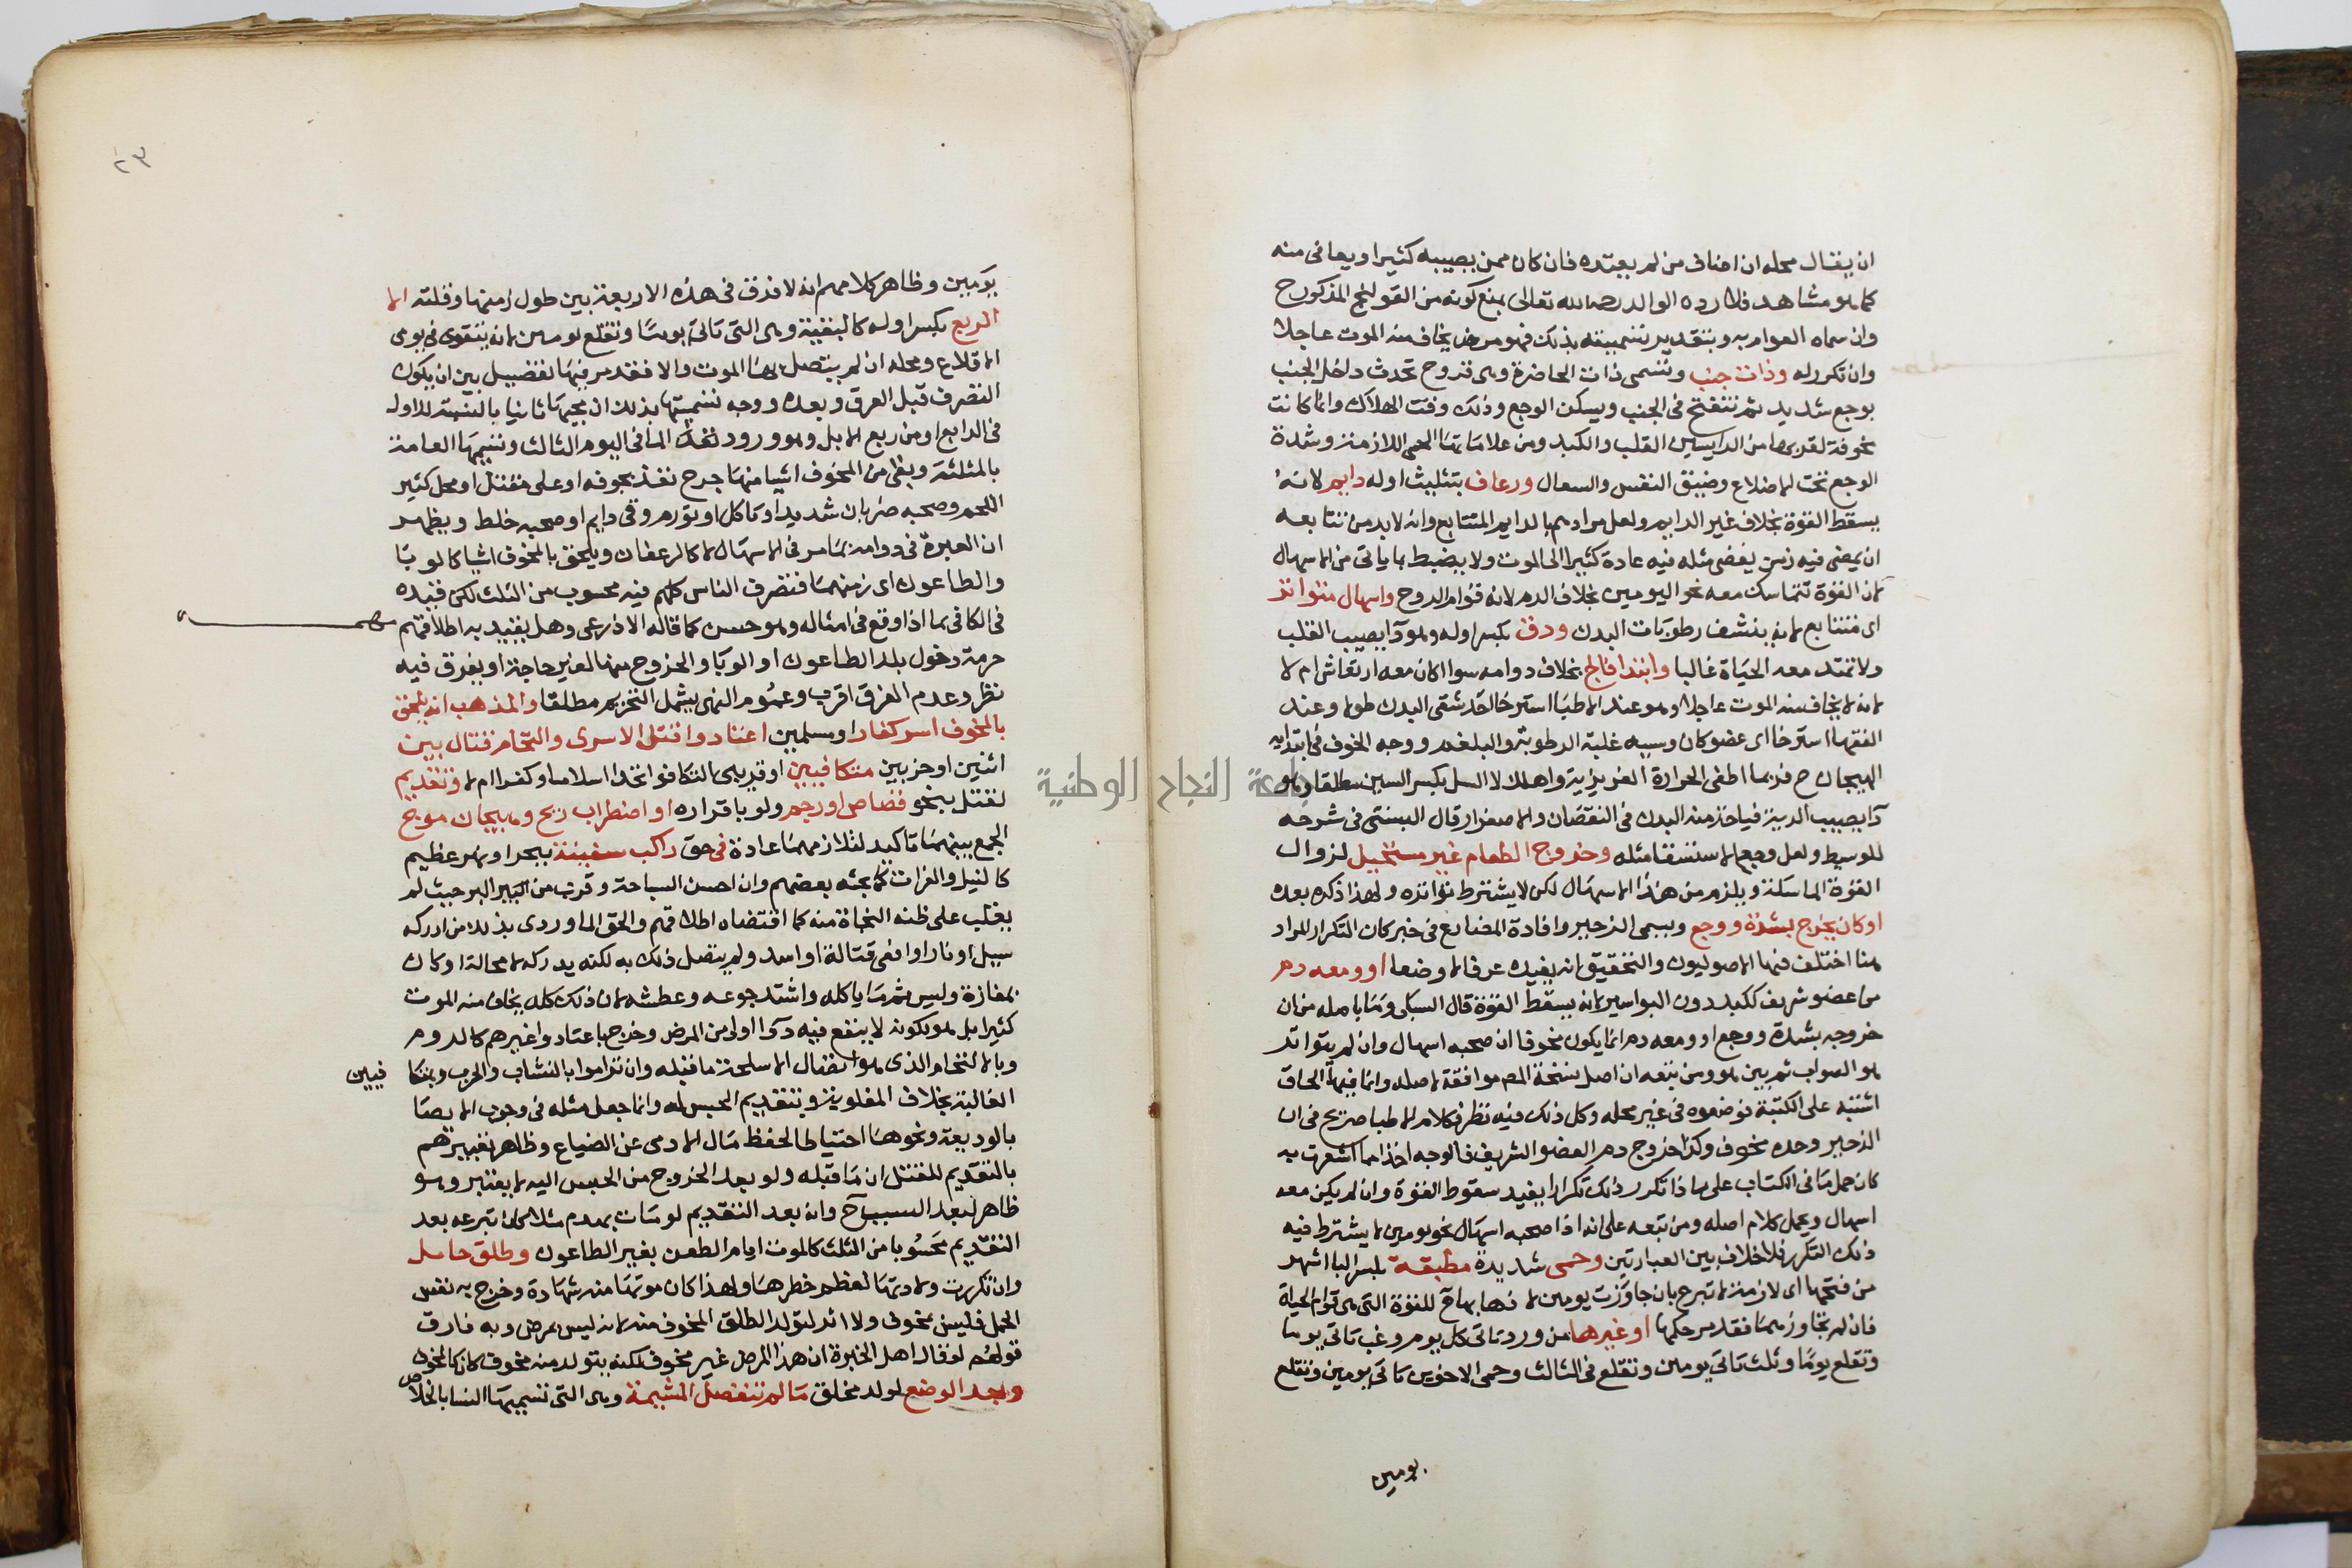 ان يقال محله ان اصاف من لم يعتده فان كان ممن يصيبه كثيرا ويعافى منه
كما هو مشاهد فلا رده الوالد رحمه الله تعالى بمنع كونه من القولنج المذكور ح
وان سماه العوام به وبتقدير تسميته بذلك فهو مرض يخاف منه الموت عاجلا
وان تكرر له وذات جنب وتسمى ذات الحاضرة وهى قروح تحدث داخل الجنب
بوجع شديد ثم تنفتح فى الجنب ويسكن الوجع وذلك وقت الهلاك وانما كانت
مخوفة لقربها من الرايسين القلب والكبد ومن علاماتها الحمى اللازمة وشدة
الوجع تحت الاضلاع وضيق النفس والسعال ورعاف بتثليث اوله دايم لانه
يسقط القوة بخلاف غير الدايم ولعل مرادهم بالدايم المتتابع وانه لابد من تتابعه
ان يمضى فيه زمن يفضى مثله فيه عادة كثيرا الى الموت ولا يضبط بما ياتى من الاسهال
لان القوة تتماسك معه نحو اليومين بخلاف الدم لانه قوام الروح واسهال متواتر
اى متتابع لانه ينشف رطوبات البدن ودق بكسر اوله وهو دآ يصيب القلب
ولا تمتد معه الحياة غالبا وابتدا فالج بخلاف دوامه سوا اكان معه ارتعاش ام لا
لانه لا يخاف منه الموت عاجلا وهو عند الاطبا استرخا احد شقى البدن طولا وعند
الفقها استرخا اى عضو كان وسببه غلبة الرطوبة والبلغم ووجه الخوف فى ابتدايه
الهيجان ح فربما اطفى الحرارة الغريزية واهلك لا السل بكسر السين مطلقا وهو
دآ يصيب الرية فياخذ منه البدن فى النقصان والاصفرار قال البستى فى شرحه
للوسيط ولعل وجع الاستسقا مثله وخروج الطعام غير مستحيل لزوال
القوة الماسكة ويلزم من هذا الاسهال لكن لا يشترط تواتره ولهذا ذكره بعده
او كان يخرج بشدة ووجع ويسمى الزحير وافادة المضارع فى خبر كان التكرار المراد
هنا اختلف فيها الاصوليون والتحقيق انه يفيده عرفا لا وضعا او ومعه دم
من عضو شريف ككبد دون البواسير لانه يسقط القوة قال السبكى وما باصله من ان
خروجه بشدة ووجع او ومعه دم انما يكون مخوفا ان صحبه اسهال وان لم يتواتر
هو الصواب ثم بين هو ومن تبعه ان اصل نسخة المص موافقة لاصله وانما فيها الحاق
اشتبه على الكتبة فوضعوه فى غير محله وكل ذلك فيه نظر فكلام الاطبا صريح فى ان
الزحير وحده مخوف وكذا خروج دم العضو الشريف فالوجه اخذا مما اشعرت به
كان حمل ما فى الكتاب على ما اذا تكرر ذلك تكرارا يفيد سقوط القوة وان لم يكن معه
اسهال ويحمل كلام اصله ومن تبعه على انه اذا صحبه اسهال نحو يومين لا يشترط فيه
ذلك التكرر فلا خلاف بين العبارتين وحمى شديدة مطبقة بكسر البا اشهر
من فتحها اى لازمة لا تبرح بان جاوزت يومين لا ذهابها ح للقوة التى هى قوام الحياة
فان لم تجاوزهما فقد مر حكمها او غيرهما من ورد تاتى كل يوم وغب تاتى يوما
وتقلع يوما وثلث تاتى يومين وتقلع فى الثالث وحمى الاخوين تاتى يومين وتقلع
يومين
٢٣
يومين وظاهر كلامهم انه لا فرق فى هذه الاربعة بين طول زمنها وقلته الا
الربع بكسر اوله كالبقية وهى التى تاتى يوما وتقلع يومين لانه يتقوى فى يومى
الاقلاع ومحله ان لم يتصل بها الموت والا فقد مر فيها تفصيل بين ان يكون
التصرف قبل العرق وبعده ووجه تسميتها بذلك ان مجيها ثانيا بالنسبة للاول
فى الرابع او من ربع الابل وهو ورود لغد الما فى اليوم الثالث وتسميها العامة
بالمثلثة وبقى من المخوف اشيا منها جرح نفذ بجوفه او على مقتل او محل كثير
اللحم وصحبه ضربان شديد او تاكل او تورم وقى دايم او صحبه خلط ويظهر
ان العبرة فى دوامه بما مر فى الاسهال لا كالرعفان ويلحق بالمخوف اشيا كالوبا
والطاعون اى زمنهما فتصرف الناس كلهم فيه محسوب من الثلث لكن قيده
فى الكافى بما اذا وقع فى امثاله وهو حسن كما قاله الاذرعى وهل يقيد به اطلاقهم
مهم
حرمة دخول بلد الطاعون او الوبا والخروج منها لغير حاجة او يفرق فيه
نظر وعدم الفرق اقرب وعموم النهى يشمل التحريم مطلقا والمذهب انه يلحق
بالمخوف اسر كفار او مسلمين اعتادوا قتل الاسرى والتحام قتال بين
اثنين او حزبين متكافيين او قريبى التكافو اتحدا اسلاما وكفرا ام لا وتقديم
لقتل بنحو قصاص او رجم ولو باقراره او اضطراب ريح وهيجان موج
الجمع بينهما تاكيد لتلازمهما عادة فى حق راكب سفينة ببحر او نهر عظيم
كالنيل والفرات كما بحثه بعضهم وان احسن السباحة وقرب من البر حيث لم
يغلب على ظنه النجاة منه كما اقتضاه اطلاقهم والحق الماوردى بذلك من ادركه
سيل او نار او افعى قتالة او اسد ولم يتصل ذلك به لكنه يدركه لا محالة او كان
بمفازة وليس ثم ما ياكله واشتد جوعه وعطشه لان ذلك كله يخاف منه الموت
كثيرا بل هو بكونه لا ينفع فيه دوا اولى من المرض وخرج باعتادوا غيرهم كالروم
وبالالتحام الذى هو اتصال الاسلحة ما قبله وان تراموا بالنشاب والحرب وبمتكا
فيين
الغالبة بخلاف المغلوبة وبتقديم الحبس له وانما جعل مثله فى وجوب الايصا
بالوديعة ونحوها احتياطا لحفظ مال الادمى عن الضياع وظاهر تعبيرهم
بالتقديم للقتل ان ما قبله ولو بعد الخروج من الحبس اليه لا يعتبر وهو
ظاهر لبعد السبب ح وانه بعد التقديم لو مات بهدم مثلا كان تبرعه بعد
التقديم محسوبا من الثلث كالموت ايام الطعن بغير الطاعون وطلق حامل
وان تكررت ولادتها لعظم خطرها ولهذا كان موتها منه شهادة وخرج به نفس
الحمل فليس بمخوف ولا اثر لتولد الطلق المخوف منه لانه ليس بمرض وبه فارق
قولهم لو قال اهل الخبرة ان هذا المرض غير مخوف لكنه يتولد منه مخوف كان كالمخوف
وبعد الوضع لولد مخلق ما لم تنفصل المشيمة وهى التى تسميها النسا بالخلاص
جامعة النجاح الوطنية